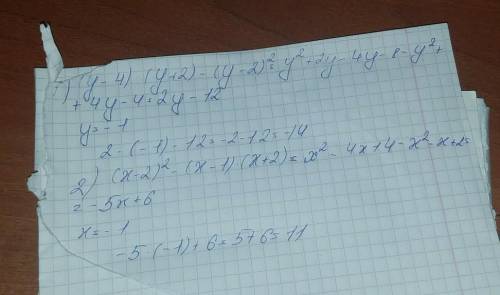 1) (y-4) (y+2) - (y-2)² = y² + 2y - 4y - 8 - y² +
+ 4y - 4 = 2y - 12
y = -1
2 · (-1) - 12 = -2 - 12 = -14
2) (x-2)² - (x-1) (x+2) = x² - 4x + 4 - x² - x + 2 =
= -5x + 6
x = -1
-5 · (-1) + 6 = 5 + 6 = 11